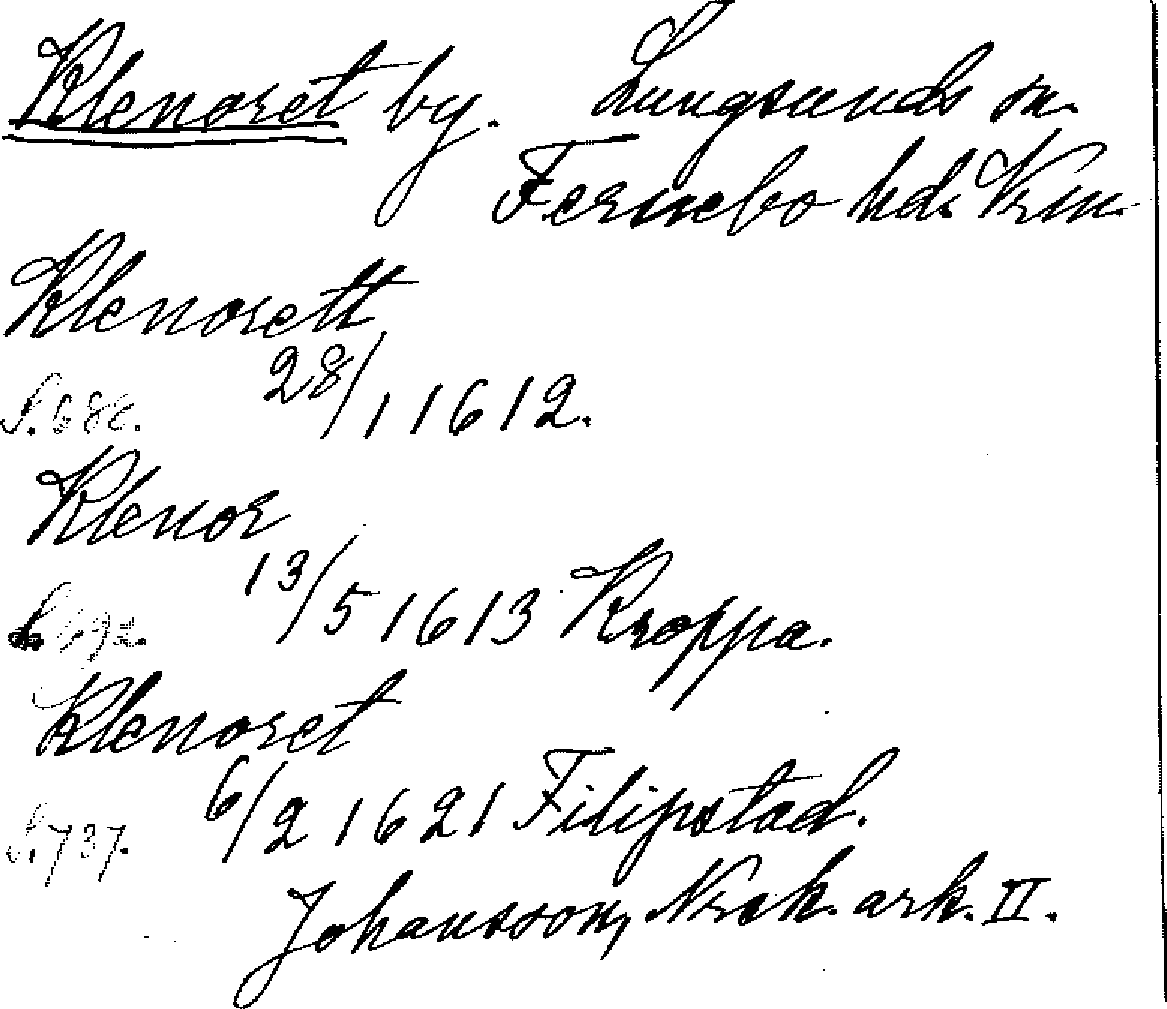 Klenoret by. Lungsunds sn.
Fernebo hd. Vrm.
Klenorett
28/1 1612.
S. 686.
Klenor
13/5 1613 Kroppa.
S. 692.
Klenoret
6/2 1621 Filipstad.
S. 737.
Johansson, Nrck. ark. II.